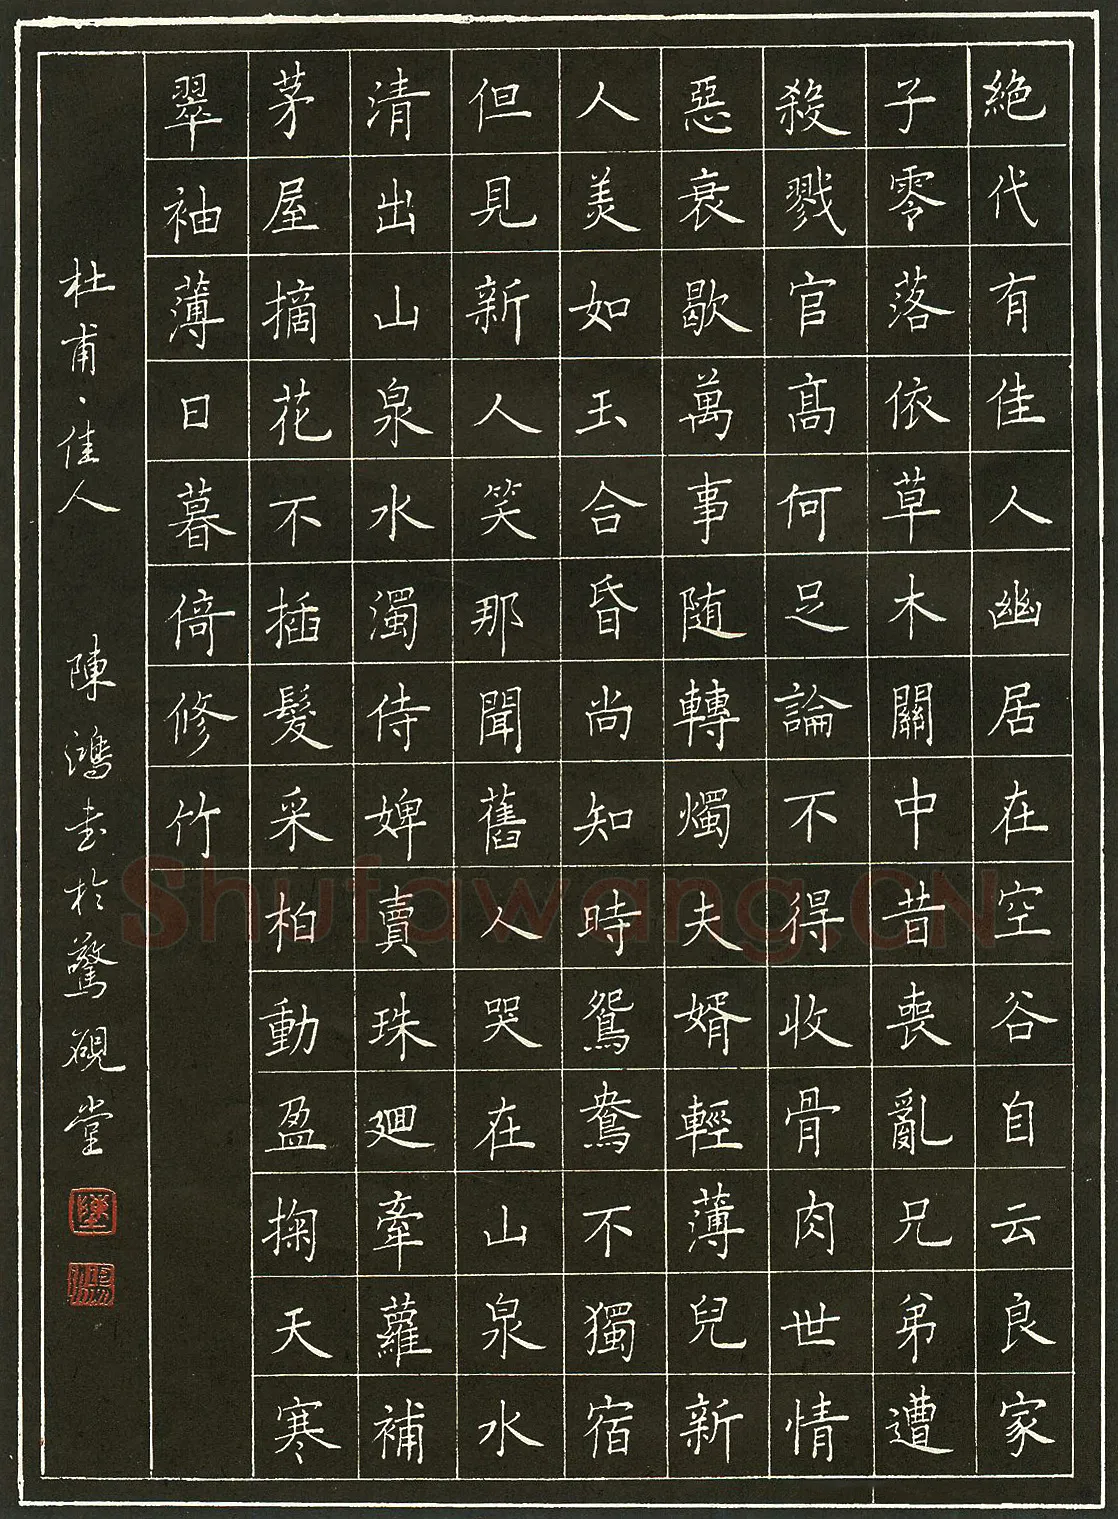 絶代有佳人幽居在空谷自云良家
子零落依草木關中昔喪亂兄弟遭
殺戮官髙何足論不得收骨肉世情
惡衰歇萬事随轉燭夫婿輕薄兒新
人美如玉合昏尚知時鴛鴦不獨宿
但見新人笑那聞舊人哭在山泉水
清出山泉水濁侍婢賣珠廻牽蘿補
茅屋摘花不插髮采柏動盈掬天寒
翠袖薄日暮倚修竹
杜甫、佳人 陳鴻书於驚硯堂
Shufawang.CN